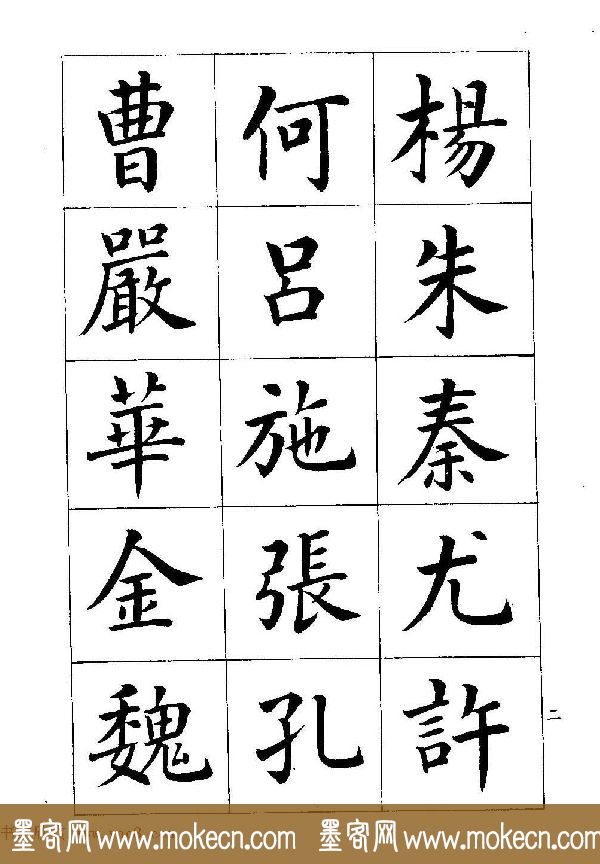 楊朱秦尤許
何呂施張孔
曹嚴華金魏
二
墨客网 www.mokecn.com 墨客网 www.mokecn.com